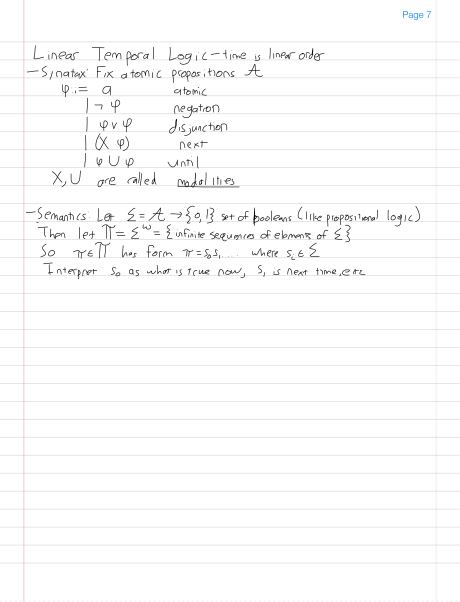 Page 7
Linear Temporal Logic - time is linear order
- Syntax: Fix atomic propositions 𝒜
φ := a atomic
| ¬ φ negation
| φ ∨ φ disjunction
| (X φ) next
| φ U φ until
X, U are called modalities
- Semantics: Let Σ = 𝒜 → {0,1} set of booleans (like propositional logic)
Then let Π = Σ^ω = {infinite sequences of elements of Σ}
So π ∈ Π has form π = s₀s₁.... where sᵢ ∈ Σ
Interpret s₀ as what is true now, s₁ is next time, etc